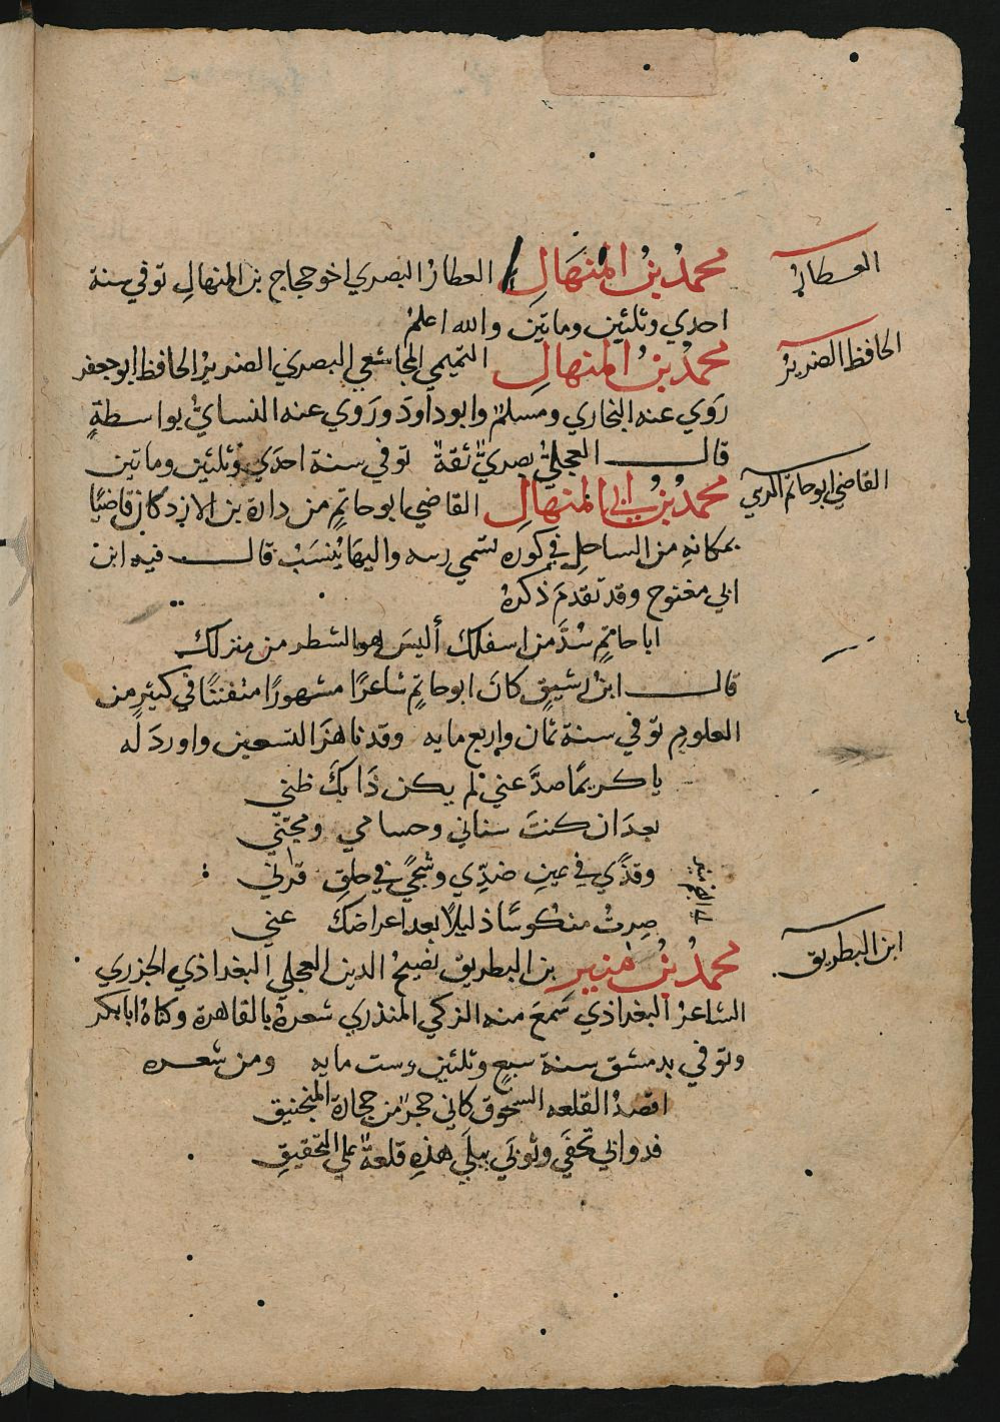 العطار
محمدُ بنُ المنهَالِ العطارُ البصري اخو حجاج بن المنهالِ توفي سنة
احدي وثلثين وماتين والله اعلمُ
الحافظ الضريرُ
محمدُ بنُ المنهالِ التميمي المجاشعي البصري الضريرُ الحافظ ابو جعفر
رَوي عنه البخاري ومسلمٌ وابو داودَ ورَوي عنه النسايُ بواسطةٍ
قال العجليُّ بصريٌ ثقةٌ توفي سنة احدَي وثلثين وماتين
القاضي ابو حاتم
محمدُ بنُ ابي المنهالِ القاضي ابو حاتمٍ من دارة بن الازد كان قاضيًا
بمكانهِ من الساحلِ في كوره تسمي رسه واليهَا يُنسَبْ قال فيه ابن
ابي مغنوج وقد تقدمَ ذكرهُ
ابا حاتمٍ سُدَّ من اسفلك أليسَ هو الشطر من منزلك
قال ابنُ رشيقٍ كانَ ابو حاتمٍ شاعرًا مشهورًا متفننًا في كثيرٍ من
العلومِ توفي سنة ثمان واربع مايه وقد ناهزَ التسعين واوردَ لَه
ياكريمًا صدَّ عني لم يكن ذَا بكَ ظني
بعدَ ان كنتَ سناني وحسامي ومجنّي
وقذًي في عينِ ضدِّي وشجًي في حلقِ قرني
صِرتُ منكوسًا ذليلًا بعد اعراضك عني
ابن البطريق
محمدُ بنُ منير بن البطريق نصيحُ الدين العجلي البغداذي الجزري
الشاعرُ البغداذي سَمعَ منه الزكي المنذري شعرهُ بالقاهرة وكناهُ ابا بكر
وتوفي بدمشق سنة سبعٍ وثلثين وست مايه ومن شعره
اقصدُ القلعه السحوق كاني حجرٌ من حجارة المنجنيق
فدوابي تحفَي وثوبَي يبلَي هذهِ قلعةٌ علي التحقيقِ